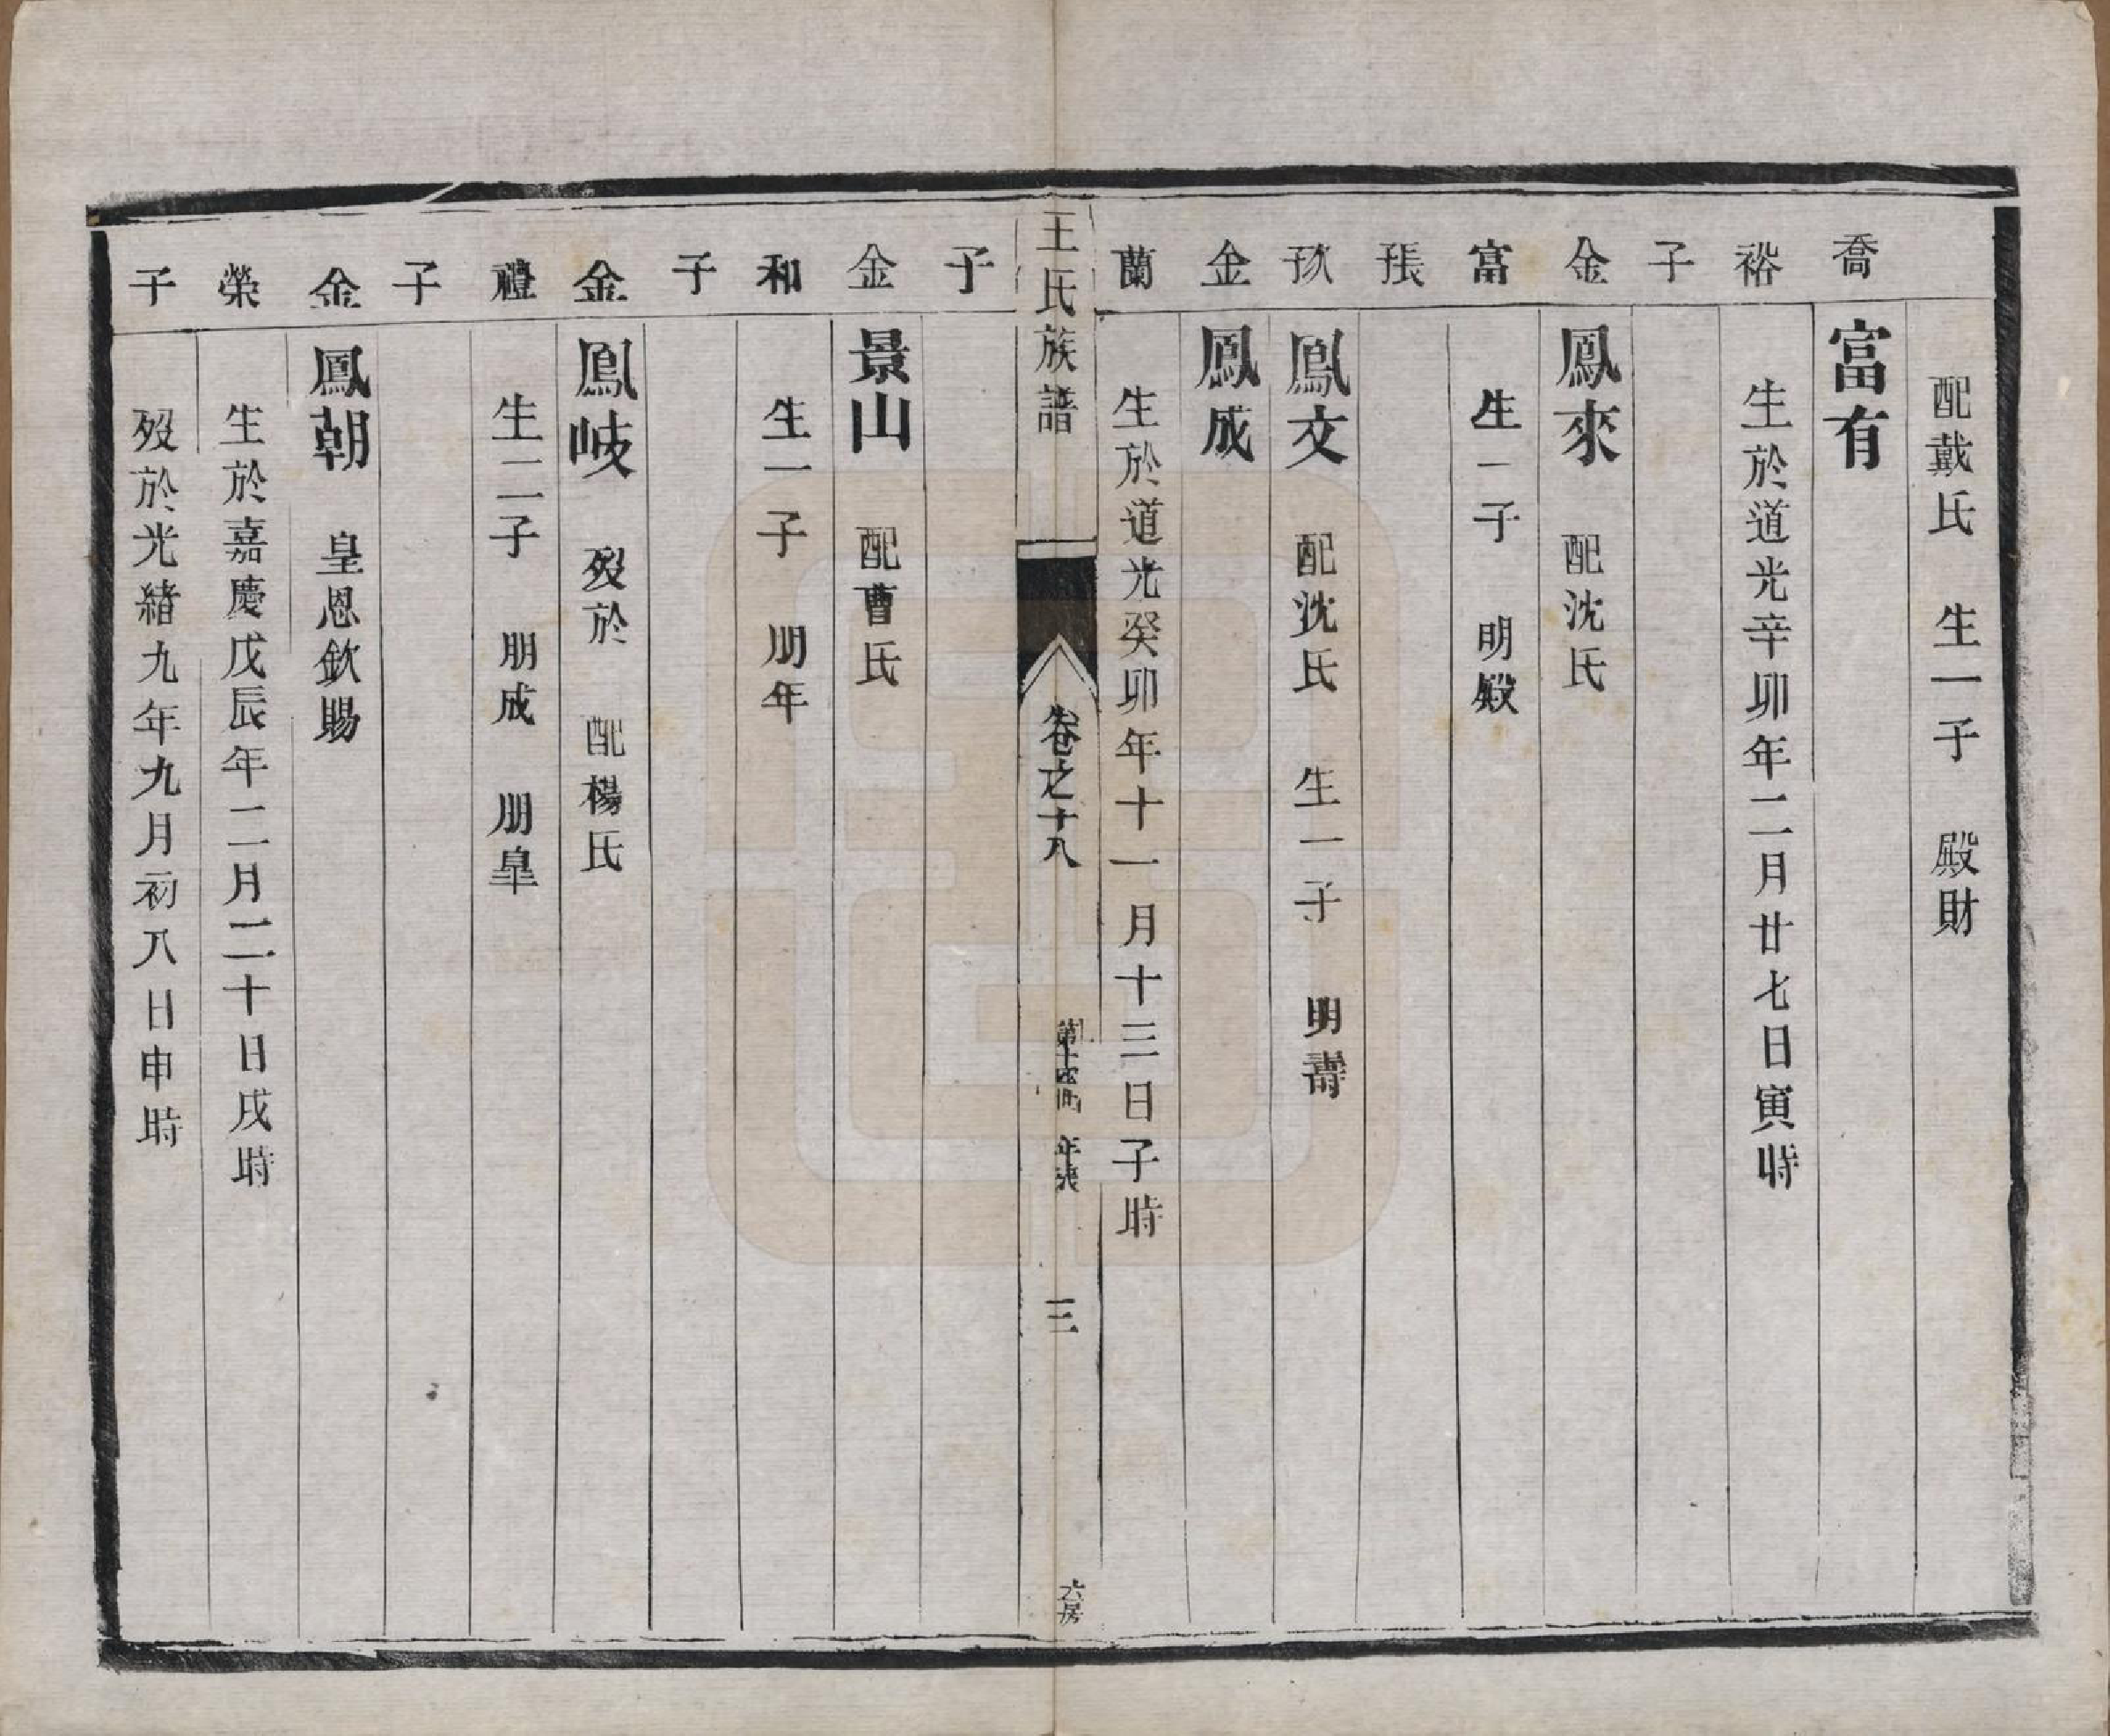 配戴氏 生一子 殿財
喬 富有
裕 生於道光辛卯年二月廿七日寅時
子
金 鳳來 配沈氏
富 生一子 明殿
張
孫 鳳文 配沈氏 生一子 明壽
金 鳳成
蘭 生於道光癸卯年十一月十三日子時
王氏族譜 卷之十八 年表 三 六房
子
金 景山 配曹氏
和 生一子 朋年
子
金 鳳岐 歿於 配楊氏
禮 生二子 朋成 朋皐
子
金 鳳朝 皇恩欽賜
榮 生於嘉慶戊辰年二月二十日戌時
子 歿於光緒九年九月初八日申時